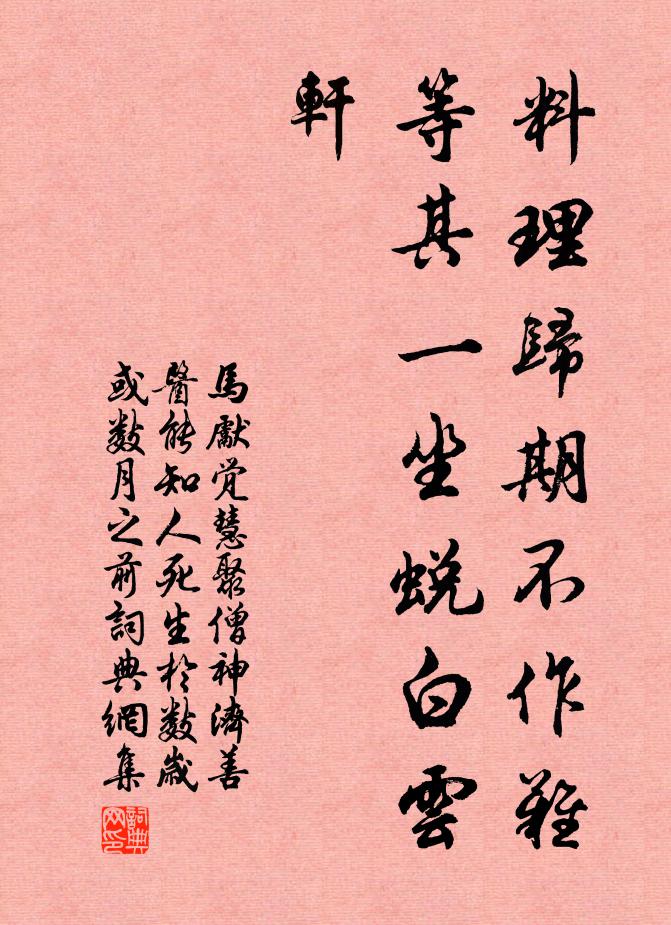 料理歸期不作難
等其一坐蛻白雲
軒
馬獻覚慧聚僧神濟善
醫能知人死生於數歲
或數月之前詞典網集
詞典网印